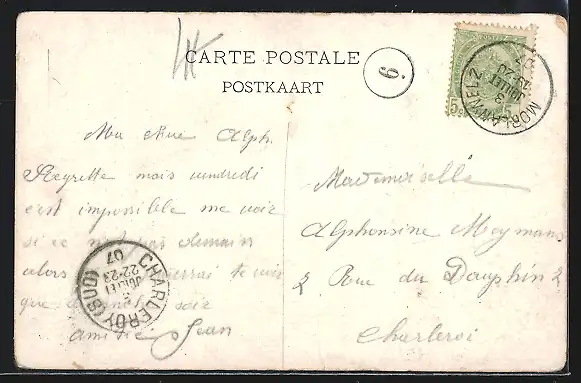 CARTE POSTALE
POSTKAART
6
MORLANWELZ
JUILLET
07
Ma Alph.
Regrette mais vendredi
c'est impossible me voir
si ce n'est pas demain
alors te voir
que soir
amitié Jean
CHARLEROY (SUD)
JUILLET
22-23
07
Mademoiselle
Alphonsine Meymans
2 Rue du Dauphin 2
Charleroi